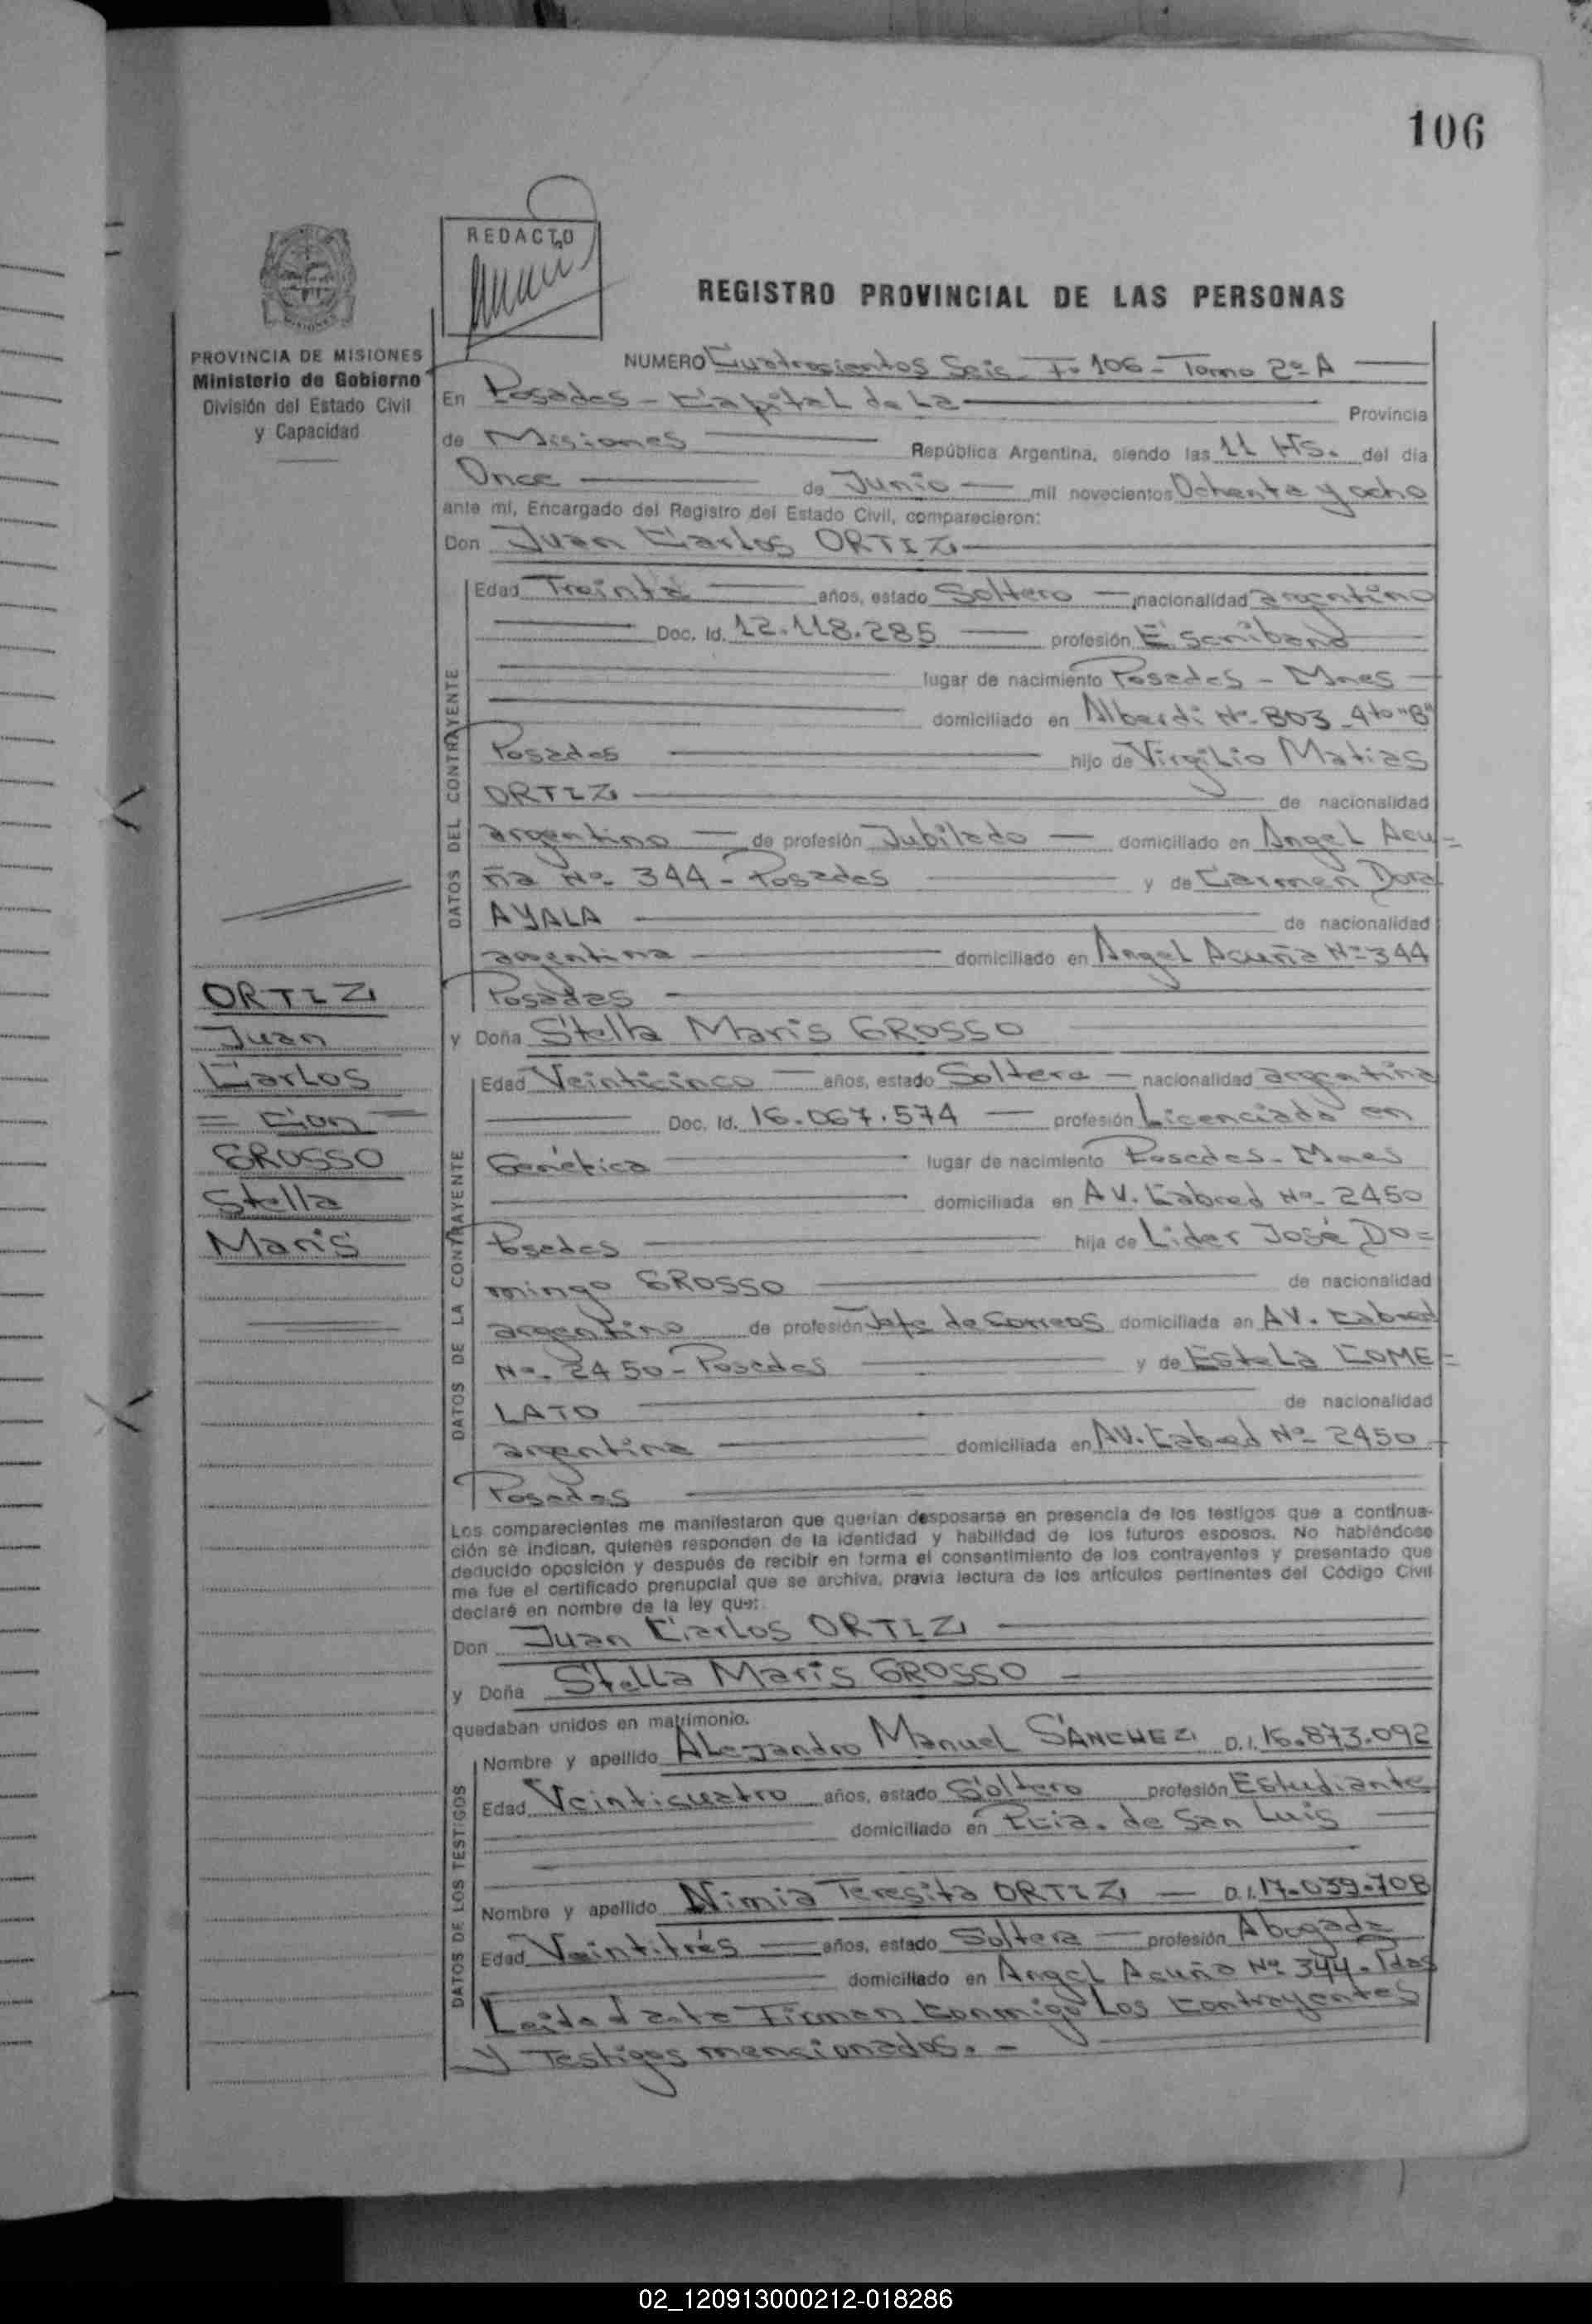 106
REDACTO
REGISTRO PROVINCIAL DE LAS PERSONAS
PROVINCIA DE MISIONES
Ministerio de Gobierno
División del Estado Civil
y Capacidad
NUMERO Cuatrocientos Seis - Fº 106 - Tomo 2º A
En Posadas - Capital de La Provincia
de Misiones República Argentina, siendo las 11 HS. del día
Once de Junio mil novecientos Ochenta y ocho
ante mí, Encargado del Registro del Estado Civil, comparecieron:
Don Juan Carlos ORTIZ
DATOS DEL CONTRAYENTE
Edad Treinta años, estado Soltero nacionalidad argentino
Doc. Id. 12.118.285 profesión Escribano
lugar de nacimiento Posadas - Mnes
domiciliado en Alberdi Nº 803 - 4to "B"
Posadas hijo de Virgilio Matias
ORTIZ de nacionalidad
argentino de profesión Jubilado domiciliado en Angel Acu=
ña Nº 344 - Posadas y de Carmen Dora
AYALA de nacionalidad
argentina domiciliado en Angel Acuña Nº 344
Posadas
ORTIZ
Juan
Carlos
= Con =
GROSSO
Stella
Maris
y Doña Stella Maris GROSSO
DATOS DE LA CONTRAYENTE
Edad Veinticinco años, estado Soltera nacionalidad argentina
Doc. Id. 16.067.574 profesión Licenciada en
Genética lugar de nacimiento Posadas - Mnes
domiciliada en AV. Cabred Nº 2450
Posadas hija de Lider José Do=
mingo GROSSO de nacionalidad
argentino de profesión Jefe de Correos domiciliada en AV. Cabred
Nº. 2450 - Posadas y de Estela COME=
LATO de nacionalidad
argentina domiciliada en AV. Cabred Nº 2450
Posadas
Los comparecientes me manifestaron que querían desposarse en presencia de los testigos que a continua-
ción se indican, quienes responden de la identidad y habilidad de los futuros esposos. No habiéndose
deducido oposición y después de recibir en forma el consentimiento de los contrayentes y presentado que
me fue el certificado prenupcial que se archiva, previa lectura de los artículos pertinentes del Código Civil
declaré en nombre de la ley que:
Don Juan Carlos ORTIZ
y Doña Stella Maris GROSSO
quedaban unidos en matrimonio.
DATOS DE LOS TESTIGOS
Nombre y apellido Alejandro Manuel SÁNCHEZ D.I. 16.873.092
Edad Veinticuatro años, estado Soltero profesión Estudiante
domiciliado en Pcia. de San Luis
Nombre y apellido Nimia Teresita ORTIZ D.I. 17.039.708
Edad Veintitrés años, estado Soltera profesión Abogada
domiciliado en Angel Acuña Nº 344 - Pdas
Leída el acta Firman Conmigo Los Contrayentes
y Testigos mencionados. -
02_120913000212-018286